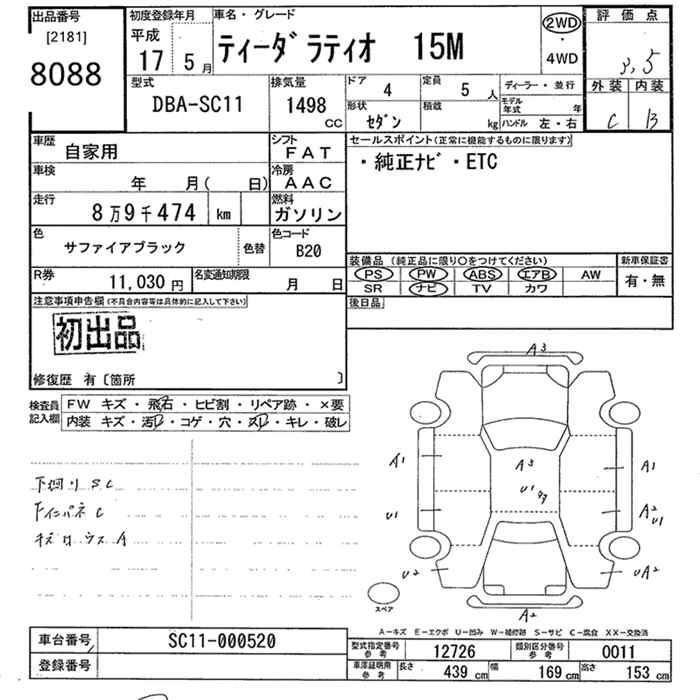 出品番号 初度登録年月 車名・グレード 評価点
[2181] 平成 2WD
8088 17 5月 ティーダラティオ 15M ・ 3.5
4WD
型式 排気量 ドア 4 定員 5人 ディーラー・並行 外装 内装
DBA-SC11 1498 cc 形状 セダン 積載 kg モデル年式 年 C B
ハンドル 左・右
車歴 自家用 シフト FAT セールスポイント(正常に機能するものに限ります)
車検 年 月( 日) 冷房 AAC ・純正ナビ・ETC
走行 8万9千474 km 燃料 ガソリン
色 サファイアブラック 色替 色コード B20
装備品 (純正品に限り○をつけてください) 新車保証書
R券 11,030円 名変通知期限 月 日 PS PW ABS エアB AW 有・無
SR ナビ TV カワ
注意事項申告欄(不具合内容等は具体的に記入して下さい) 後日品
初出品
修復歴 有〔箇所 〕
検査員記入欄 FW キズ・飛石・ヒビ割・リペア跡・×要
内装 キズ・汚れ・コゲ・穴・スレ・キレ・破レ
A3
A1 A3 A1
下廻りSC U1
U1 A2 U1
U2 UA2
スペア
A2
A-キズ E-エクボ U-凹み W-補修跡 S-サビ C-腐食 XX-交換済
車台番号 SC11-000520 型式指定番号参考 12726 類別区分番号参考 0011
登録番号 車庫証明用参考 長さ 439 cm 幅 169 cm 高さ 153 cm